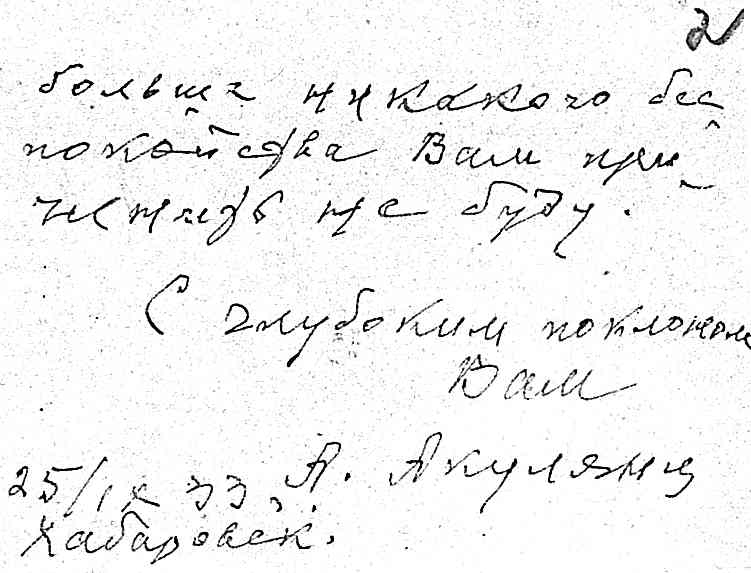 2
больше никакого бес
покойства Вам при
ченять не буду.
С глубоким поклоном
Вам
25/IX 33, А. Акулянц
Хабаровск.